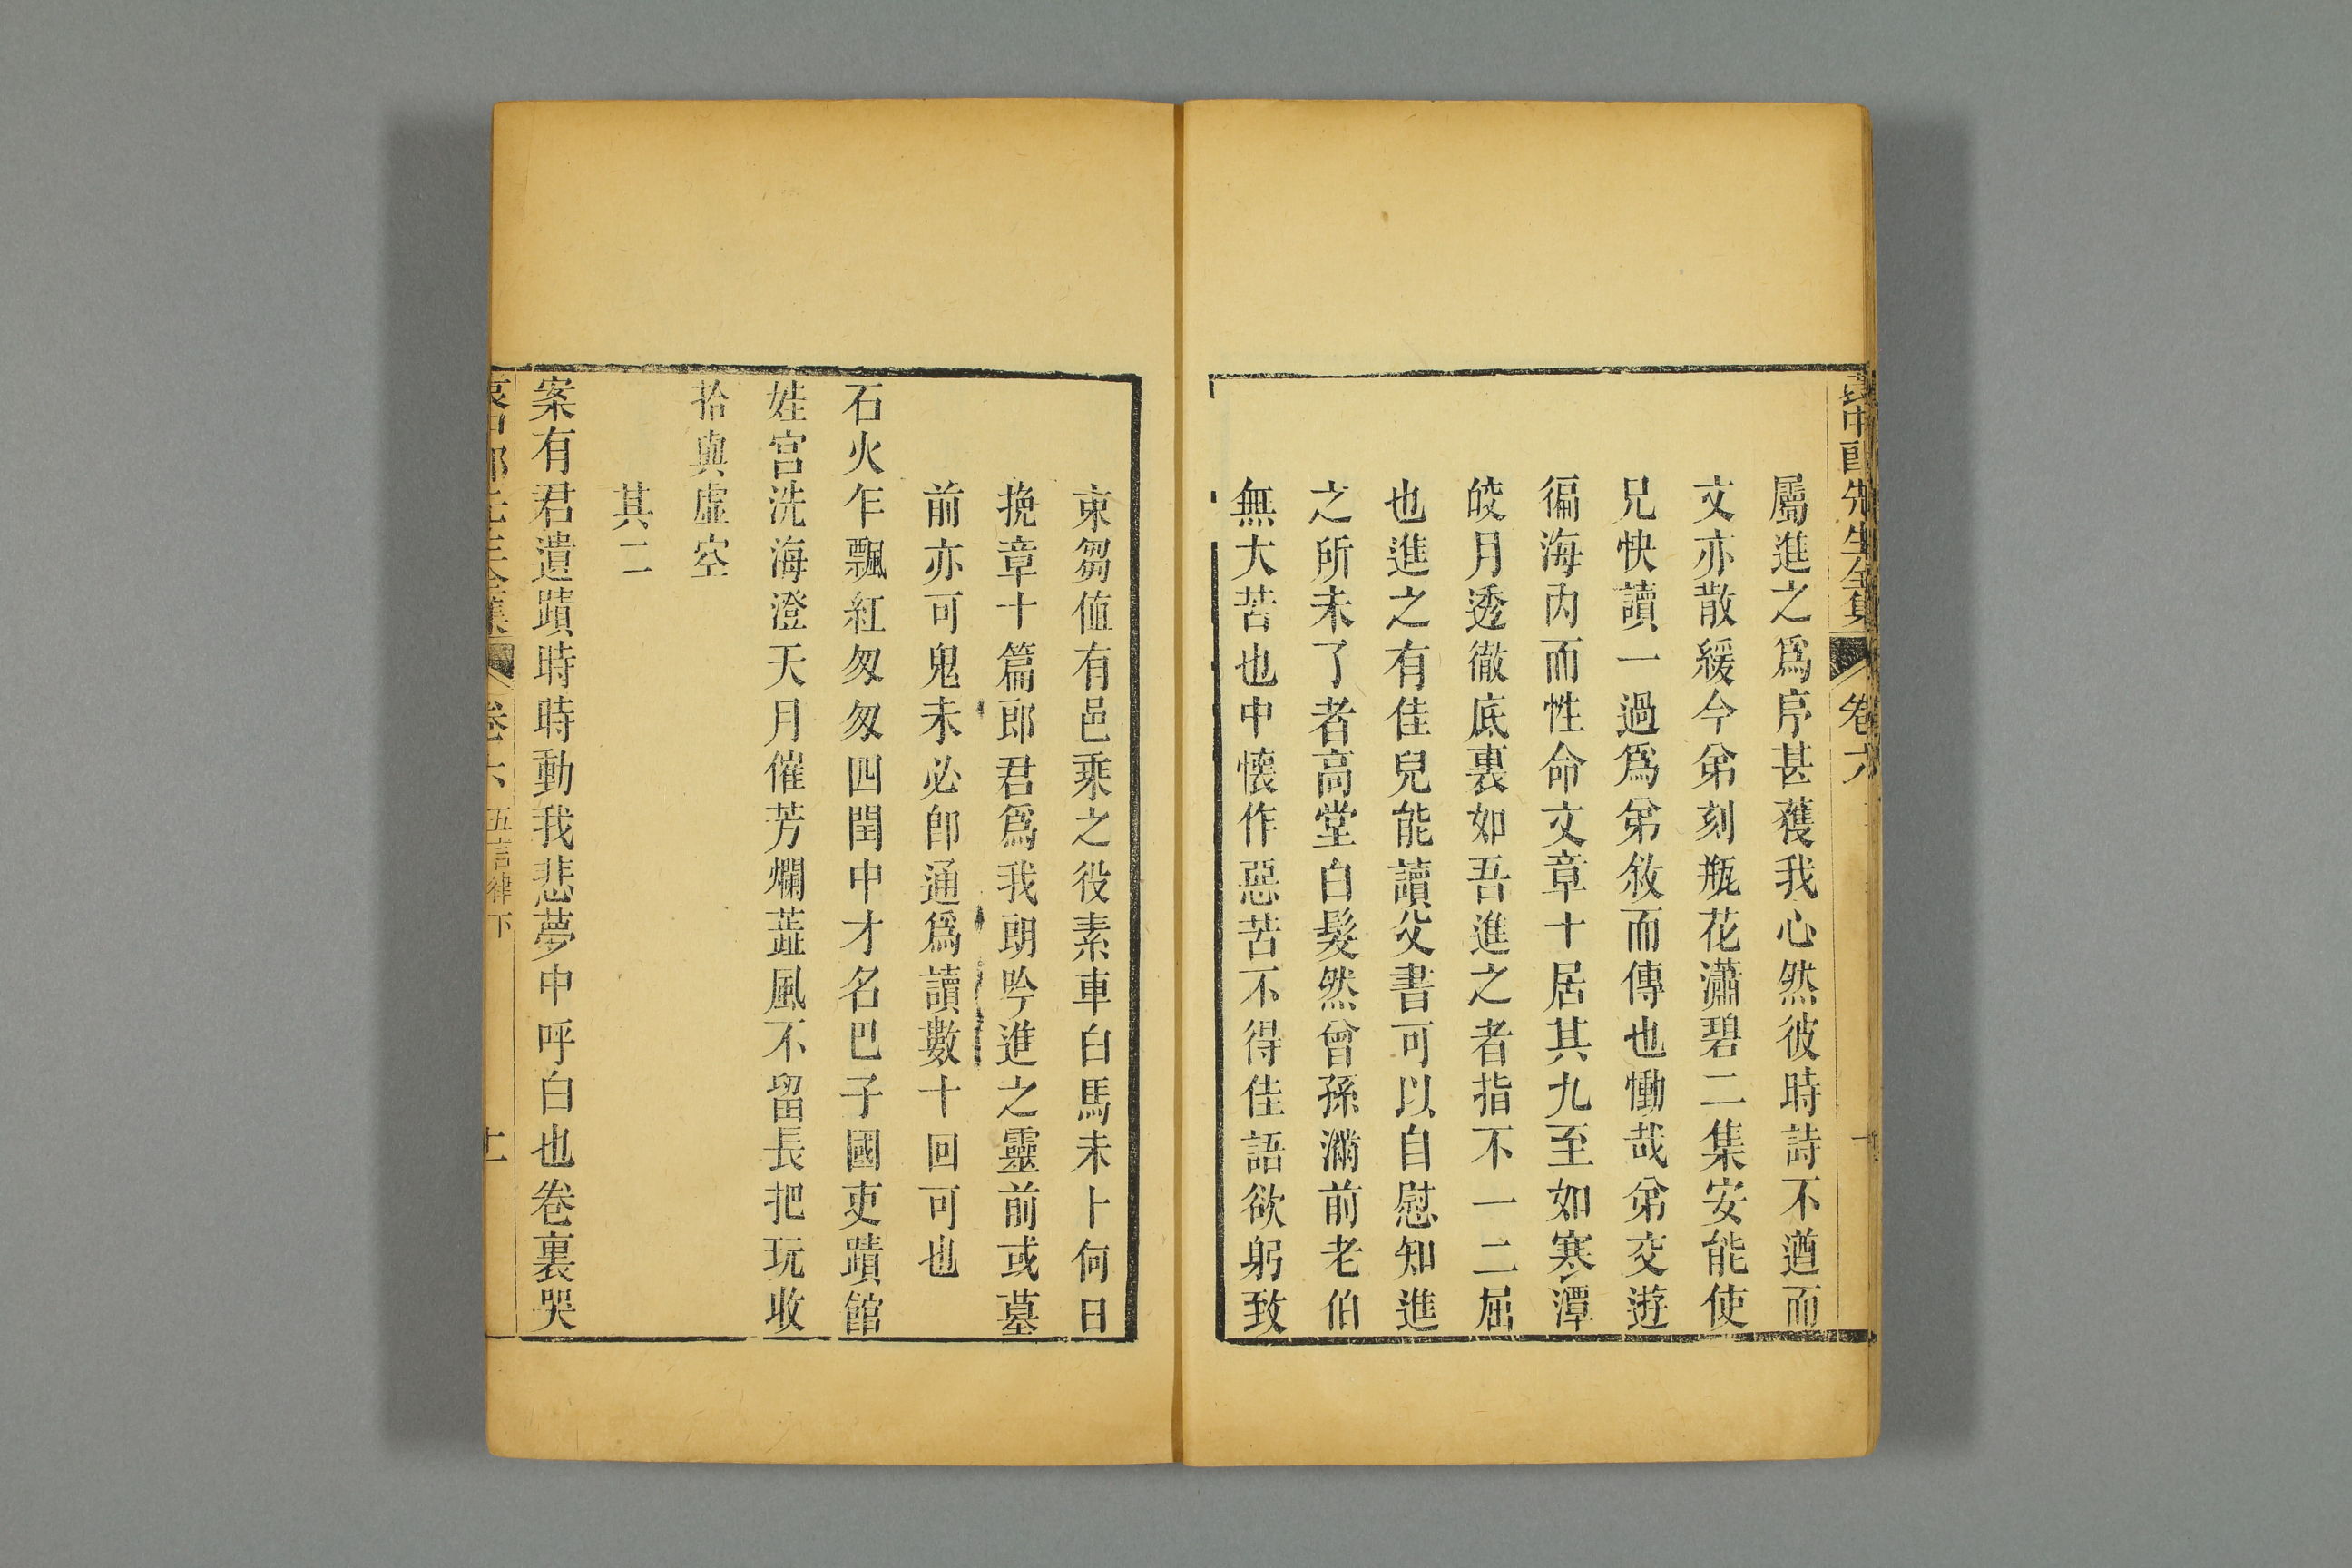 袁中郎先生全集 卷六
屬進之爲序甚獲我心然彼時詩不遒而
文亦散緩今弟刻瓶花瀟碧二集安能使
兄快讀一過爲弟敘而傳也慟哉弟交遊
徧海內而性命文章十居其九至如寒潭
皎月透徹底裏如吾進之者指不一二屈
也進之有佳兒能讀父書可以自慰知進
之所未了者高堂白髮然曾孫滿前老伯
無大苦也中懷作惡苦不得佳語欲躬致
束芻値有邑乘之役素車白馬未卜何日
挽章十篇郎君爲我朗吟進之靈前或墓
前亦可鬼未必卽通爲讀數十回可也
石火乍飄紅匆匆四閏中才名巴子國吏蹟館
娃宮洗海澄天月催芳爛蕋風不留長把玩收
拾與虛空
其二
案有君遺蹟時時動我悲夢中呼白也卷裏哭
袁中郎先生全集 卷六 五言律下 十一